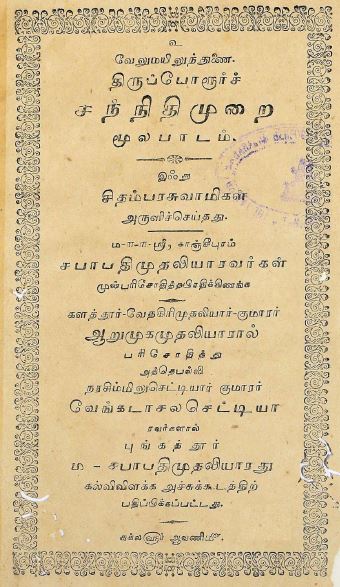 உ
வேலுமயிலுந்துணை.
திருப்போரூர்ச்
சந்நிதிமுறை
மூலபாடம்.
இஃது
சிதம்பரசுவாமிகள்
அருளிச்செய்தது.
ம-ா-ா-ஸ்ரீ, காஞ்சீபுரம்
சபாபதிமுதலியாரவர்கள்
முன்பரிசோதித்தபிரதிக்கிணங்க
களத்தூர்-வேதகிரிமுதலியார்-குமாரர்
ஆறுமுகமுதலியாரால்
பரிசோதித்து
அத்தெபல்லி
நரசிம்மிலுசெட்டியார் குமாரர்
வேங்கடாசலசெட்டியா
ரவர்களால்
புங்கத்தூர்
ம - சபாபதிமுதலியாரது
கல்விவிளக்க அச்சுக்கூடத்திற்
பதிப்பிக்கப்பட்டது.
ஆவணிமீ.